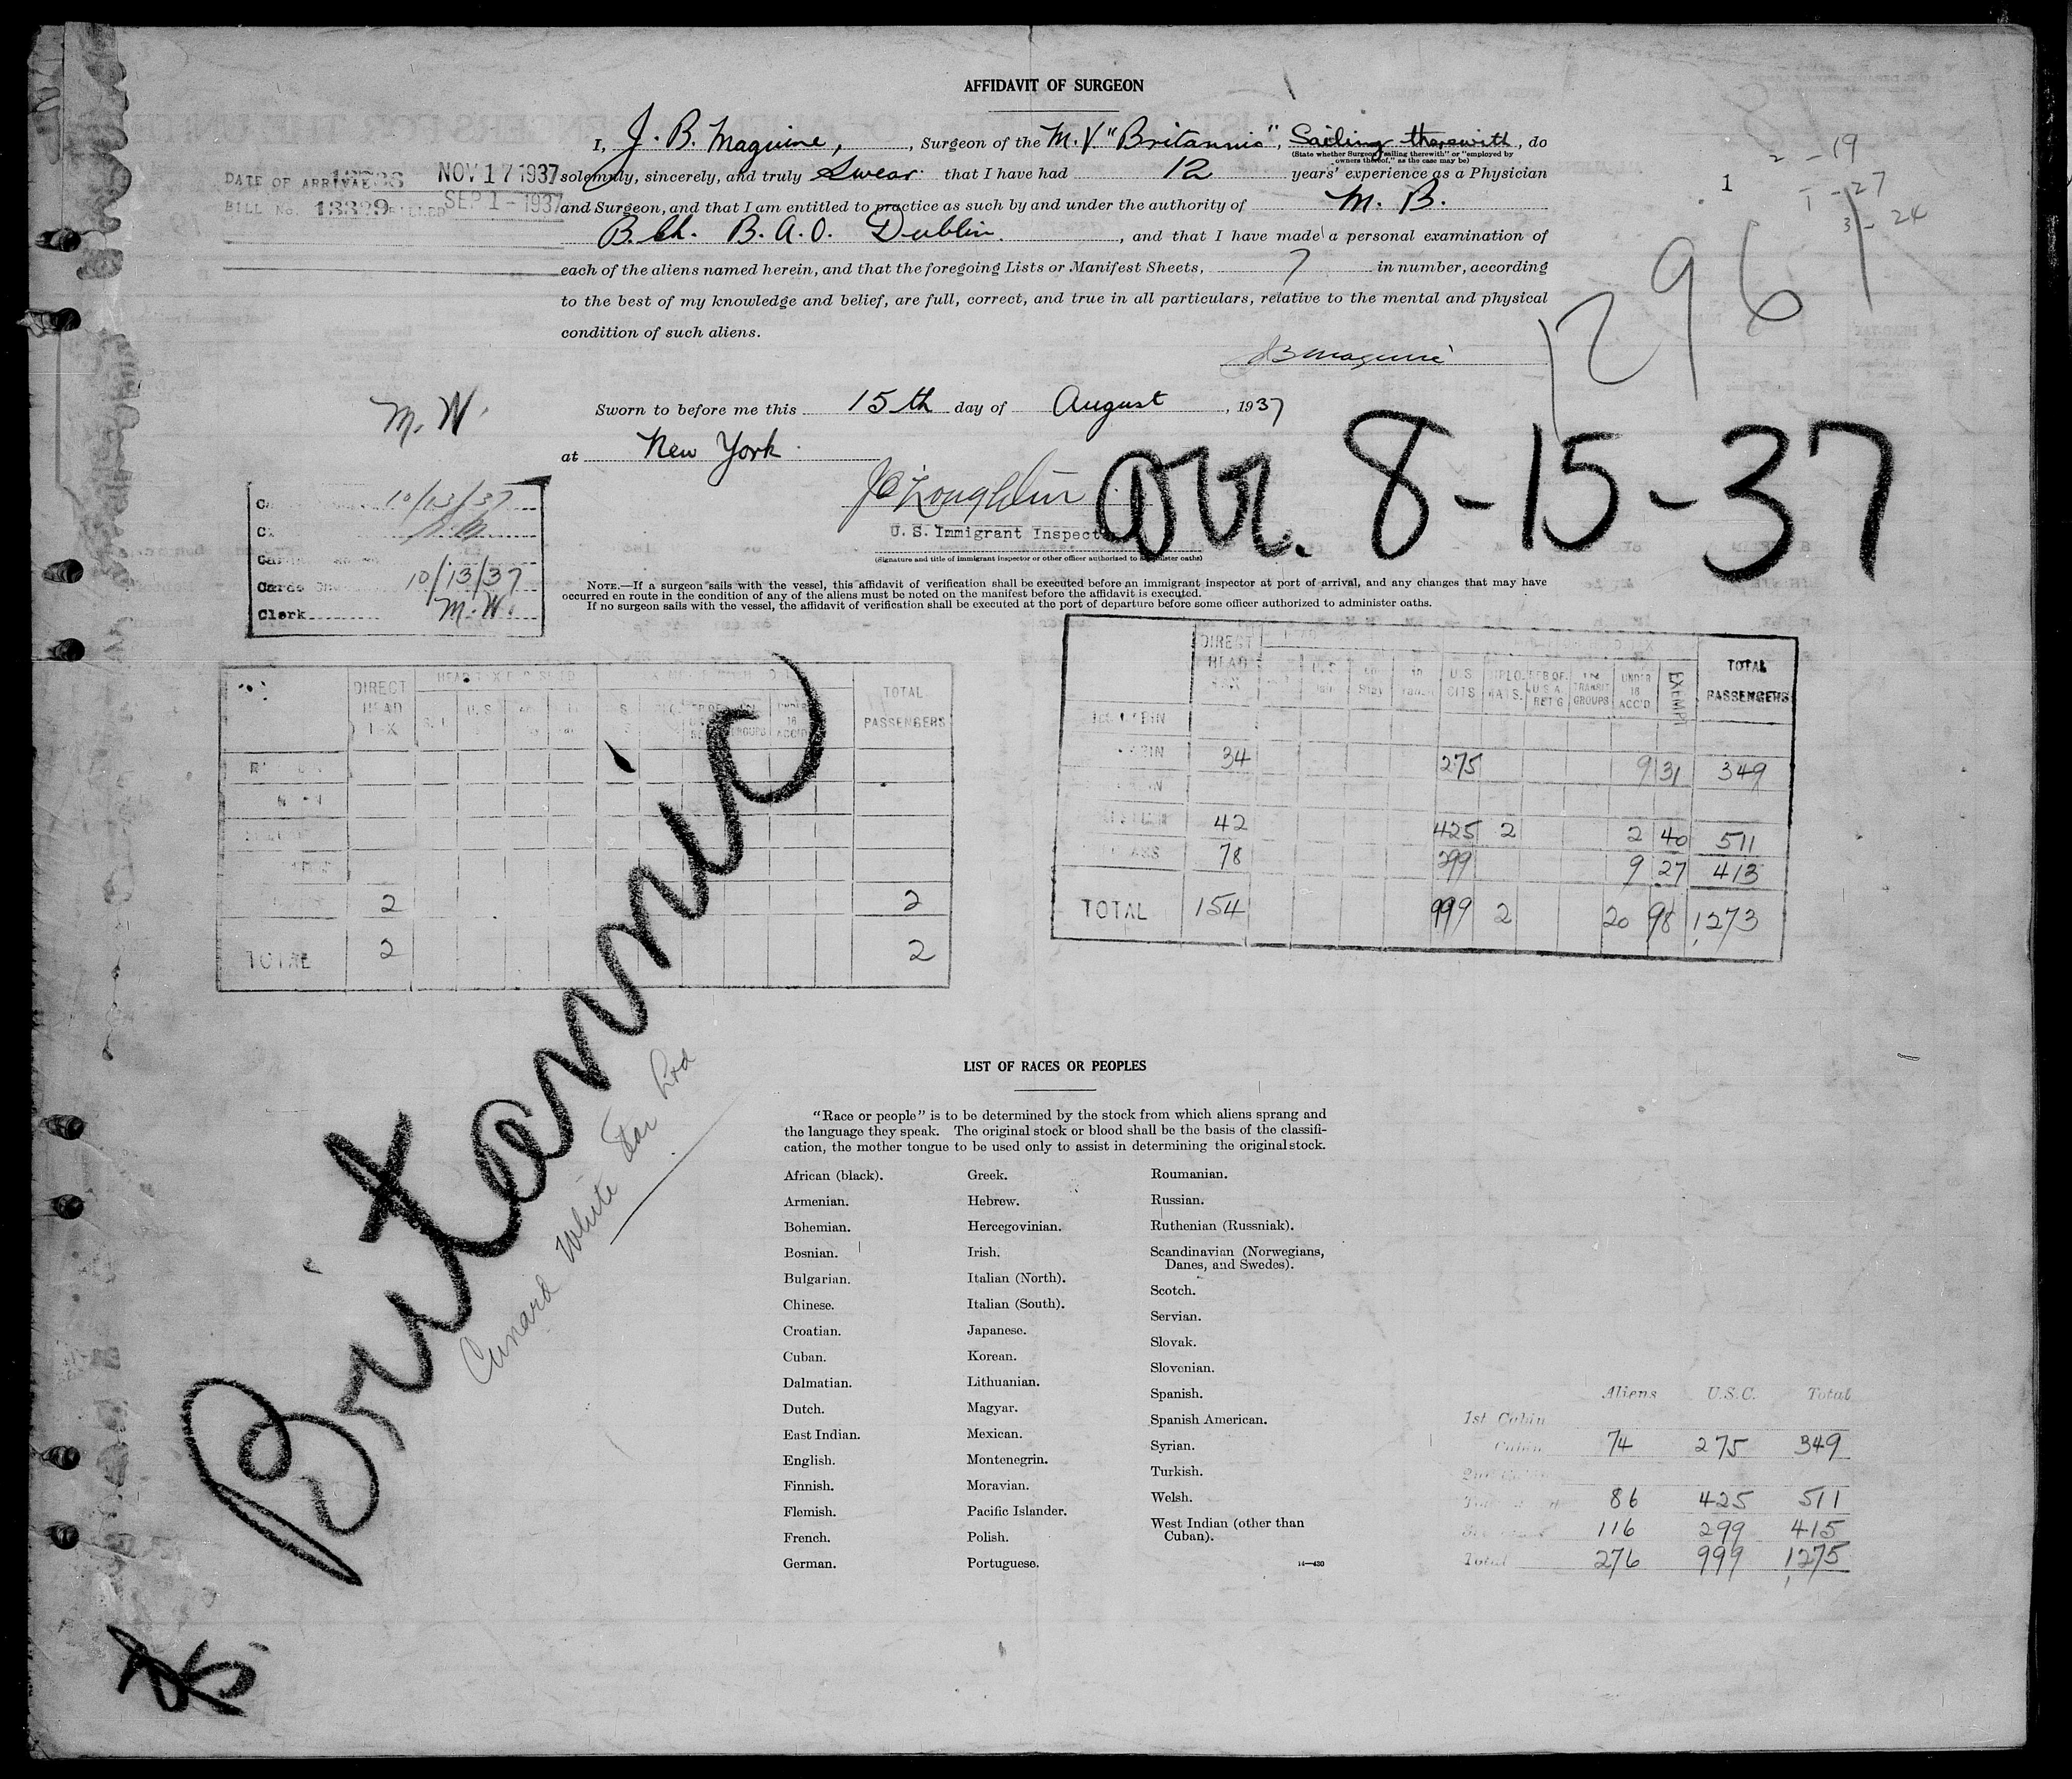 AFFIDAVIT OF SURGEON
I, J. B. Maguire, , Surgeon of the M.V. "Britannic", Sailing therewith, do
(State whether Surgeon "sailing therewith" or "employed by
owners thereof," as the case may be)
solemnly, sincerely, and truly Swear that I have had 12 years' experience as a Physician
and Surgeon, and that I am entitled to practice as such by and under the authority of M. B.
B. Ch. B. A. O. Dublin. , and that I have made a personal examination of
each of the aliens named herein, and that the foregoing Lists or Manifest Sheets, 7 in number, according
to the best of my knowledge and belief, are full, correct, and true in all particulars, relative to the mental and physical
condition of such aliens.
J B Maguire
Sworn to before me this 15th day of August , 1937
at New York.
U. S. Immigrant Inspector
(Signature and title of immigrant inspector or other officer authorized to administer oaths)
NOTE.—If a surgeon sails with the vessel, this affidavit of verification shall be executed before an immigrant inspector at port of arrival, and any changes that may have
occurred en route in the condition of any of the aliens must be noted on the manifest before the affidavit is executed.
If no surgeon sails with the vessel, the affidavit of verification shall be executed at the port of departure before some officer authorized to administer oaths.
DATE OF ARRIVAL NOV 17 1937
BILL No. 13329 BILLED SEP 1 - 1937
2 - 19
1
1 - 27
3 - 24
1296
arr. 8-15-37
M. W.
10/13/37
Cards 10/13/37
Clerk M. W.
DIRECT HEAD TAX TOTAL PASSENGERS
2 2
TOTAL 2 2
DIRECT HEAD TAX U.S. CITS DIPLOMATS. IN TRANSIT GROUPS UNDER 16 ACC'D EXEMPT TOTAL PASSENGERS
34 275 9 31 349
42 425 2 2 40 511
78 299 9 27 413
TOTAL 154 999 2 20 98 1,273
Britannic
Cunard White Star Ltd
LIST OF RACES OR PEOPLES
"Race or people" is to be determined by the stock from which aliens sprang and
the language they speak. The original stock or blood shall be the basis of the classifi-
cation, the mother tongue to be used only to assist in determining the original stock.
African (black).
Armenian.
Bohemian.
Bosnian.
Bulgarian.
Chinese.
Croatian.
Cuban.
Dalmatian.
Dutch.
East Indian.
English.
Finnish.
Flemish.
French.
German.
Greek.
Hebrew.
Hercegovinian.
Irish.
Italian (North).
Italian (South).
Japanese.
Korean.
Lithuanian.
Magyar.
Mexican.
Montenegrin.
Moravian.
Pacific Islander.
Polish.
Portuguese.
Roumanian.
Russian.
Ruthenian (Russniak).
Scandinavian (Norwegians,
Danes, and Swedes).
Scotch.
Servian.
Slovak.
Slovenian.
Spanish.
Spanish American.
Syrian.
Turkish.
Welsh.
West Indian (other than
Cuban).
14—430
Aliens U.S.C. Total
1st Cabin
Cabin 74 275 349
86 425 511
116 299 415
Total 276 999 1,275